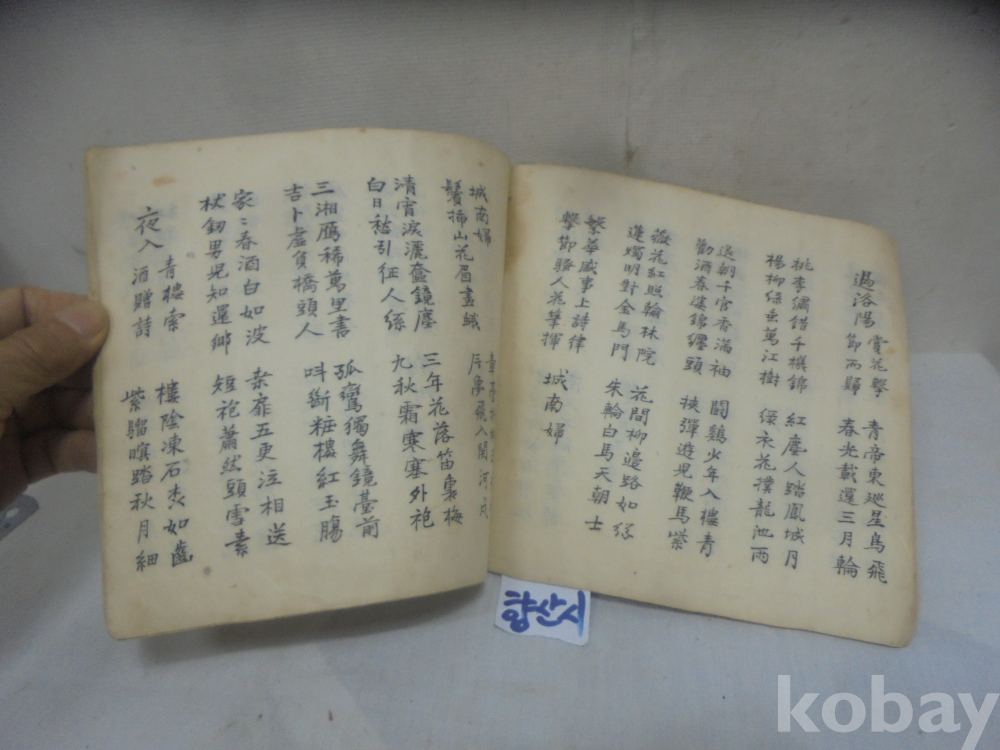 過洛陽
賞花擊
節而歸
青帝東巡星鳥飛
春光載還三月輪
桃李繡錯千機錦
楊柳絲垂萬江樹
紅塵人踏鳳城月
緑衣花撲龍池雨
退朝千官香滿袖
勸酒春溪錦纏頭
鬪鷄少年入樓青
挾彈遊兒鞭馬紫
薇花紅照翰林院
蓮燭明對金馬門
花間柳邊路如絲
朱輪白馬天朝士
繁華盛事上詩律
擊節騷人花筆揮
城南婦
城南婦
鬢掃山花眉畫蛾
片夢飛入關河月
清宵淚灑奩鏡塵
白日愁引征人絲
三年花落笛裏梅
九秋霜寒塞外袍
三湘雁稀萬里書
吉卜虛負橋頭人
孤鸞獨舞鏡臺前
呌斷粧樓紅玉腸
家〻春酒白如波
杖釼男兒知還鄉
柴扉五更泣相送
短袍蕭然頭雪素
夜入
青樓索
酒贈詩
樓陰凍石如齒
紫騮暝踏秋月細
향산시
kobay